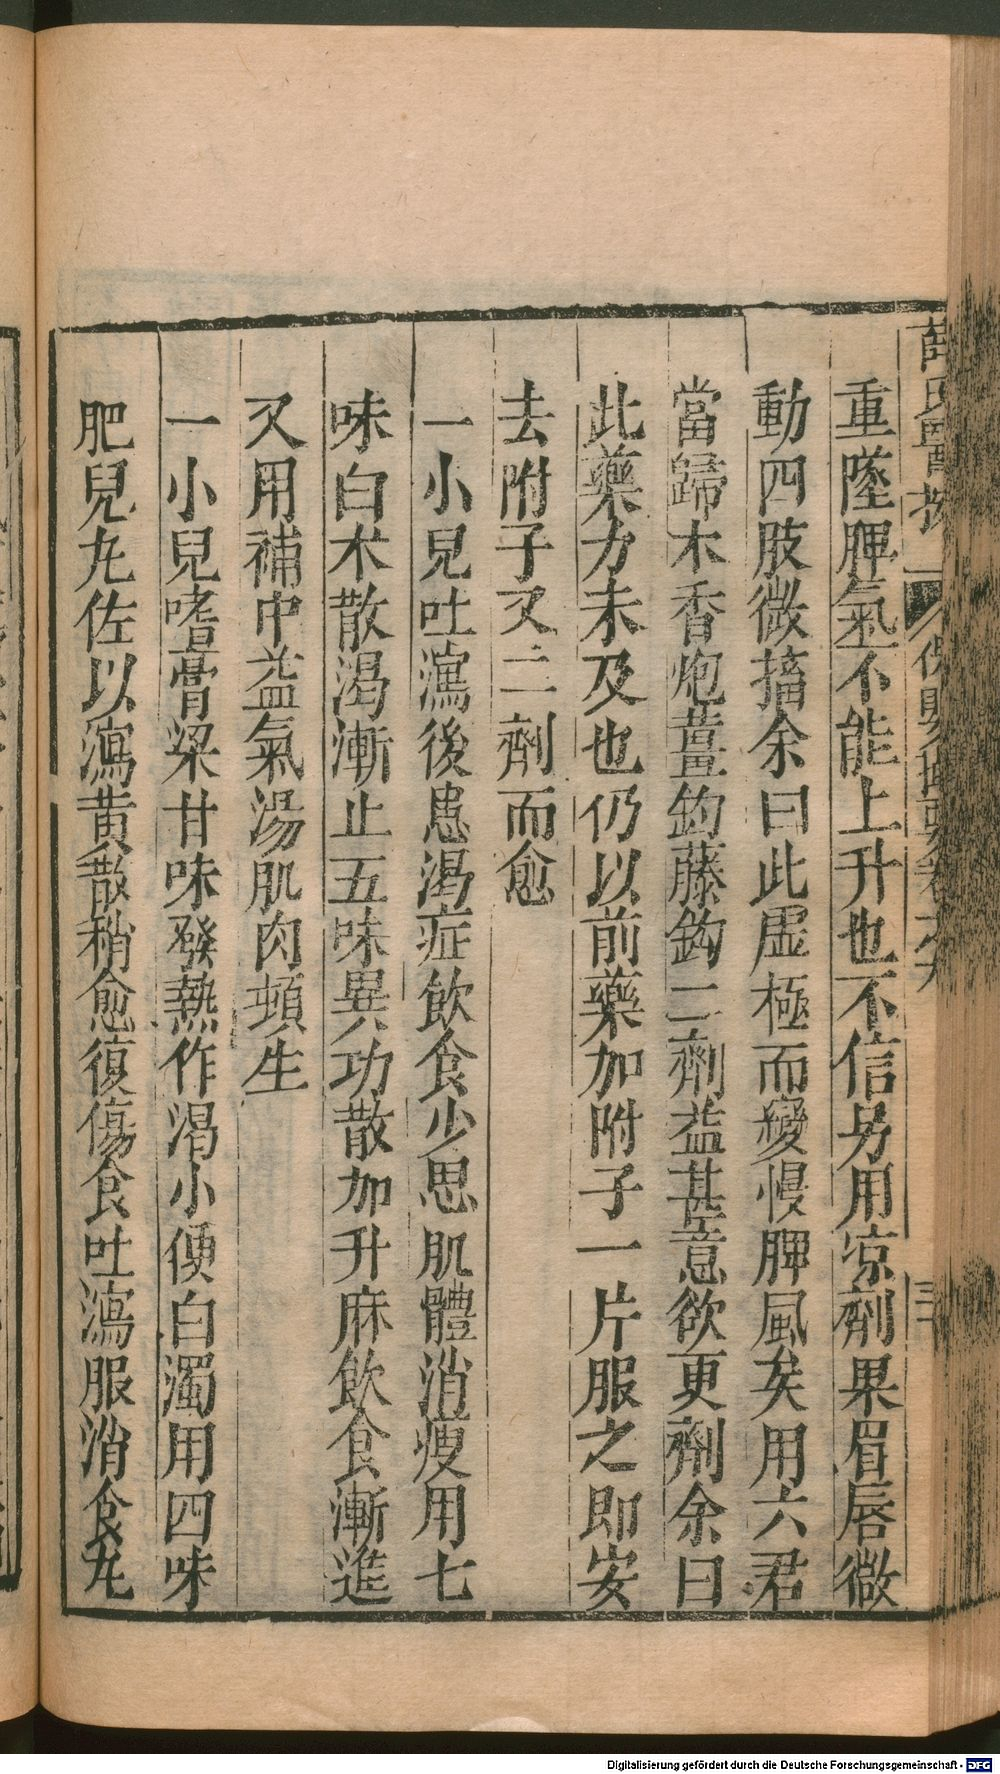 薛氏醫按 保嬰撮要卷六 三十
重墜脾氣不能上升也不信另用凉劑果眉唇微
動四肢微搐余曰此虛極而變慢脾風矣用六君
當歸木香炮薑鈎藤鈎二劑益甚意欲更劑余曰
此藥力未及也仍以前藥加附子一片服之即安
去附子又二劑而愈
一小兒吐瀉後患渴症飲食少思肌體消瘦用七
味白木散渴漸止五味異功散加升麻飲食漸進
又用補中益氣湯肌肉頓生
一小兒嗜膏粱甘味發熱作渴小便白濁用四味
肥兒丸佐以瀉黄散稍愈復傷食吐瀉服消食丸
Digitalisierung gefördert durch die Deutsche Forschungsgemeinschaft - DFG